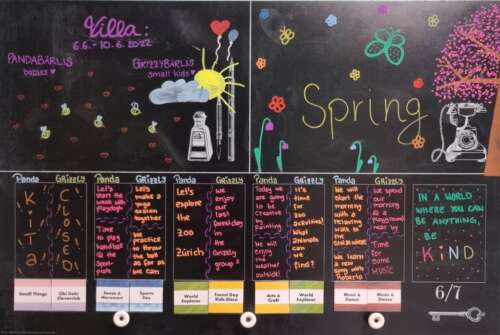 Villa:
6.6. - 10.6.2022
PANDABÄRLIS
babies
GRIZZYBÄRLIS
small kids
Spring
Panda
GRizzly
Panda
GRizzly
Panda
Grizzly
Panda
Grizzly
Panda
Grizzly
K
i
T
a
C
L
O
S
E
D
Let's
start the
week with
playdogh
Time
to play
handball
Let's
make a
yoga
session
together
We
practice
to throw
the ball
as far ok.
we can
Let's
explore
the
zoo
in
Zürich
We
enjoy
our
last
forest day
in the
Grizzly
group
Today we
are going
to be
creative
by
Painting
We will
enjoy
the
weather
outside!
It's
time
for
zoo
activities!
What
animals
can
we
find?
We will
start the
morning
with a
relaxing
walk to
the
We
learn a
new song
with
We spend
our
morning
on a
playground
near by
Time
for
some
MUSIC
IN A WORLD
WHERE YOU CAN
BE ANYTHING,
BE
KiND
6/7
Small Things
Obi Gubi
Elenerclub
Dance &
Movement
Sports
Day
World
Explorer
Forest Day
Kids Disco
Arts &
Craft
World
Explorer
Music &
Dance
Music &
Dance